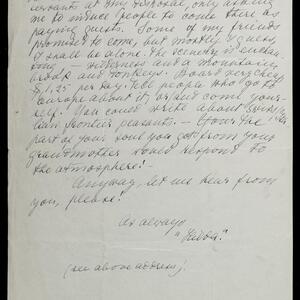 servants at my disposal, only asking
me to induce people to come there as
paying guests. Some of my friends
promised to come, but mostly I guess
I shall be alone. The scenery is enchan-
ting — wilderness and a mountainy
brook and donkeys. Board very cheap
$1,25 per day. Tell people who go to
Europe about it, or and come your-
self! You could write about
frontier peasants. —
part of your soul you got from your
grandmother would respond to
the atmosphere! —
Anyway, let us hear from
you, please!
As always
(see above address).